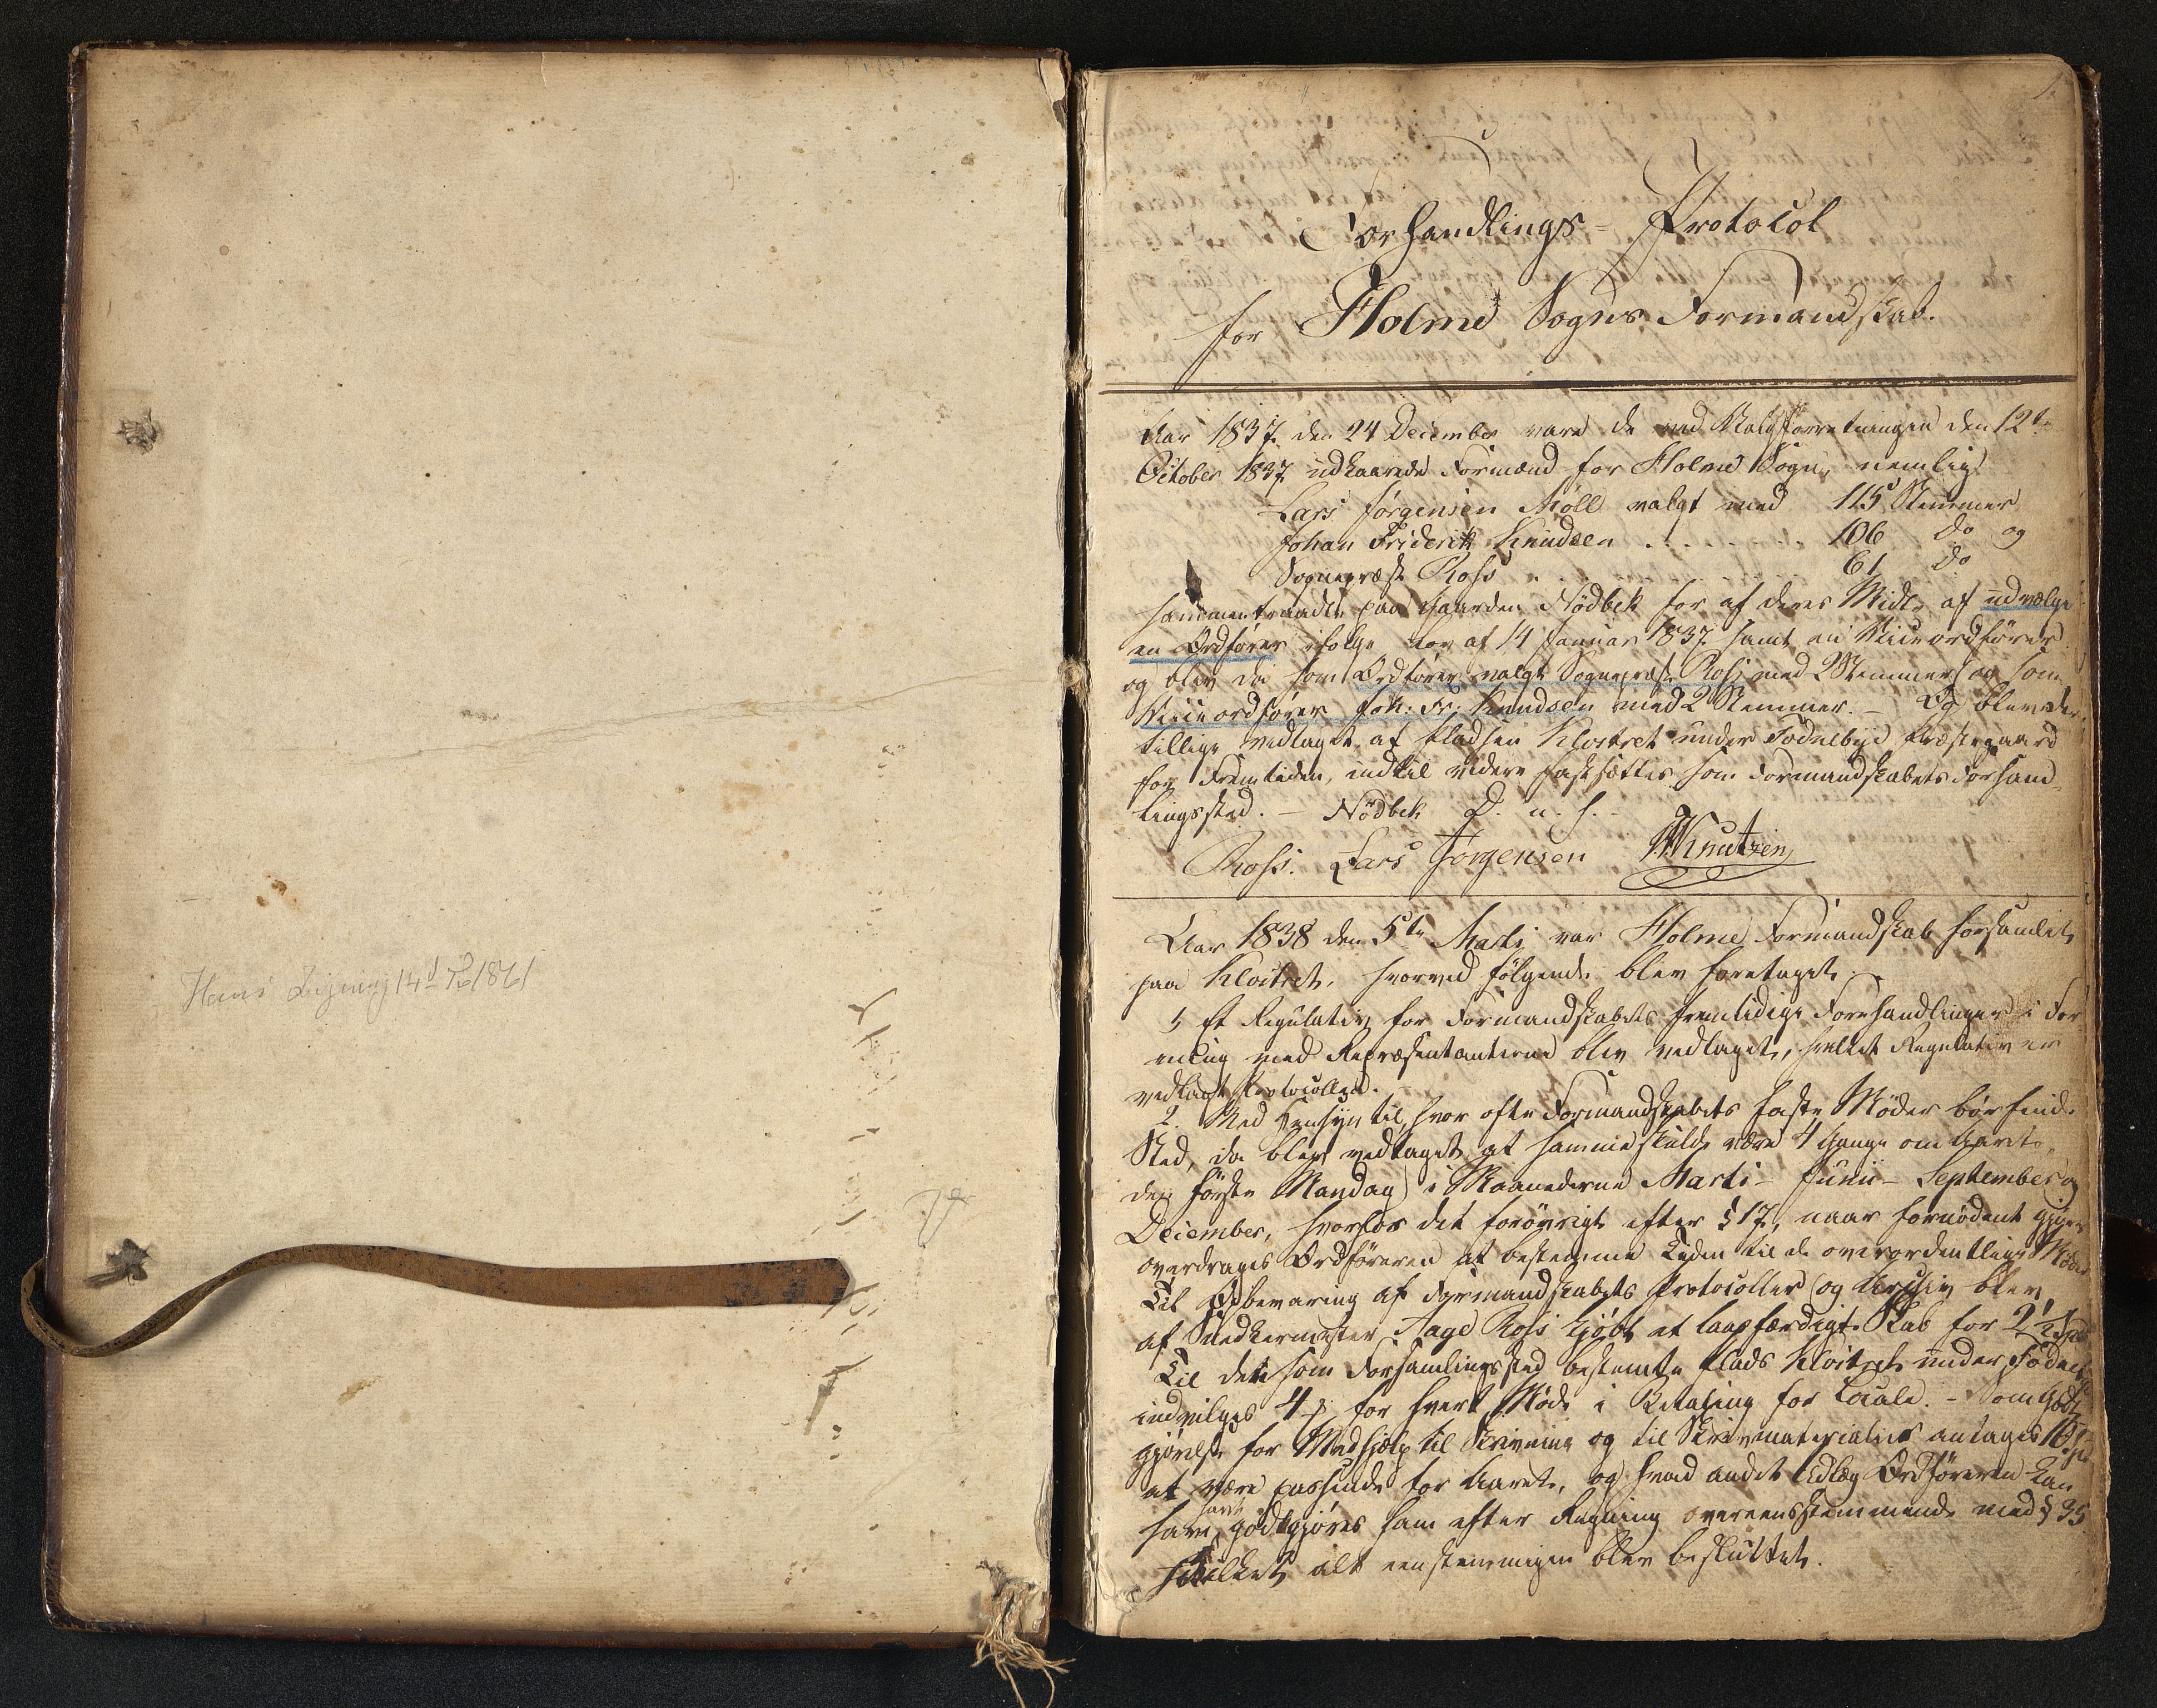 Hans Ligning 14d 1861
1.
Forhandlings-Protocol
for Holme Sogns Formandskab.
Aar 1837. den 24 December vare de ved Valgforretningen den 12te
October 1837 udkaarede Formænd for Holme Sogn, nemlig
Lars Jørgensen Möll valgt med 115 Stemmer
Johan Friderik Knudsen . . . . . . . 106 do og
Sognepræst Ross . . . . . 61 do
sammentraadte paa Gaarden Nödbek for af deres Midte at udvælge
en Ordfører ifølge Lov af 14 Januar 1837. samt en Viceordfører
og blev da som Ordfører valgt Sognepræst Ross med 2 Stemmer og som
Viceordfører Joh: Fr: Knudsen med 2 Stemmer. – Og blev der
tillige vedtaget at Pladsen Klostret under Fodnebye Præstegaard
for Fremtiden, indtil videre fastsættes som Formandskabets Forhand-
lingssted. – Nödbek D. u. s. –
Ross. Lars Jörgensen Knutzen
Aar 1838 den 5te Marti var Holme Formandskab forsamlet
paa Klostret, hvorved følgende blev foretaget:
1 Et Regulativ for Formandskabets fremtidige Forhandlinger i For
ening med Repræsentanterne blev vedtaget, hvilket Regulativ er
vedlagt Protocollen. –
2. Med Hensyn til, hvor ofte Formandskabets faste Møder bør finde
Sted, da blev vedtaget at samme skulde være 4 Gange om Aaret,
den første Mandag i Maanederne Marti – Junii – September og
December, hvorhos det forøvrigt efter § 17, naar fornødent gjøres
overdrages Ordføreren at bestemme Tiden til de overordentlige Møder
Til Opbevaring af Formandskabets Protocoller og Archiv blev
af Snedkermester Aage Ross kjøbt et laasfærdigt Skab for 2½ Spd
Til det som Forsamlingssted bestemte Plads Klostret under Fodnebye
indvilges 4 for hvert Møde i Betaling for Locale. – Som Godt
gjørelse for Medhjælp til Skrivning og til Skrivematerialier antages 10 Spd
at være passende for Aaret, og hvad andet Udlæg Ordføreren kan
have havt godtgjøres ham efter Regning overeensstemmende med § 35
Hvilket alt eenstemmigen blev besluttet.